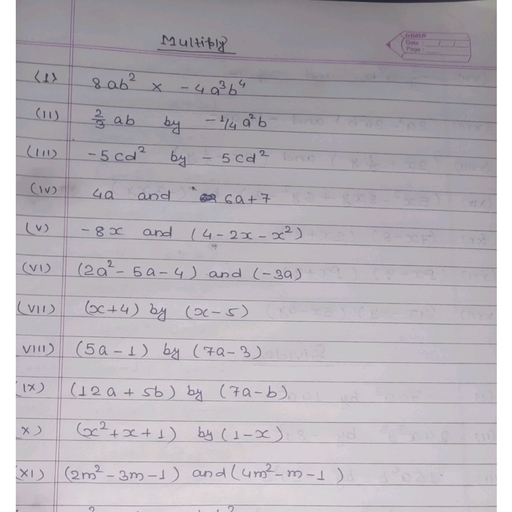 Multiply
Date :
Page :
(I) 8ab² × -4a³b⁴
(II) 2/3 ab by -1/4 a²b
(III) -5cd² by -5cd²
(IV) 4a and 6a+7
(V) -8x and (4-2x-x²)
(VI) (2a²-5a-4) and (-3a)
(VII) (x+4) by (x-5)
VIII) (5a-1) by (7a-3)
IX) (12a + 5b) by (7a-b)
X) (x²+x+1) by (1-x)
XI) (2m²-3m-1) and (4m²-m-1)